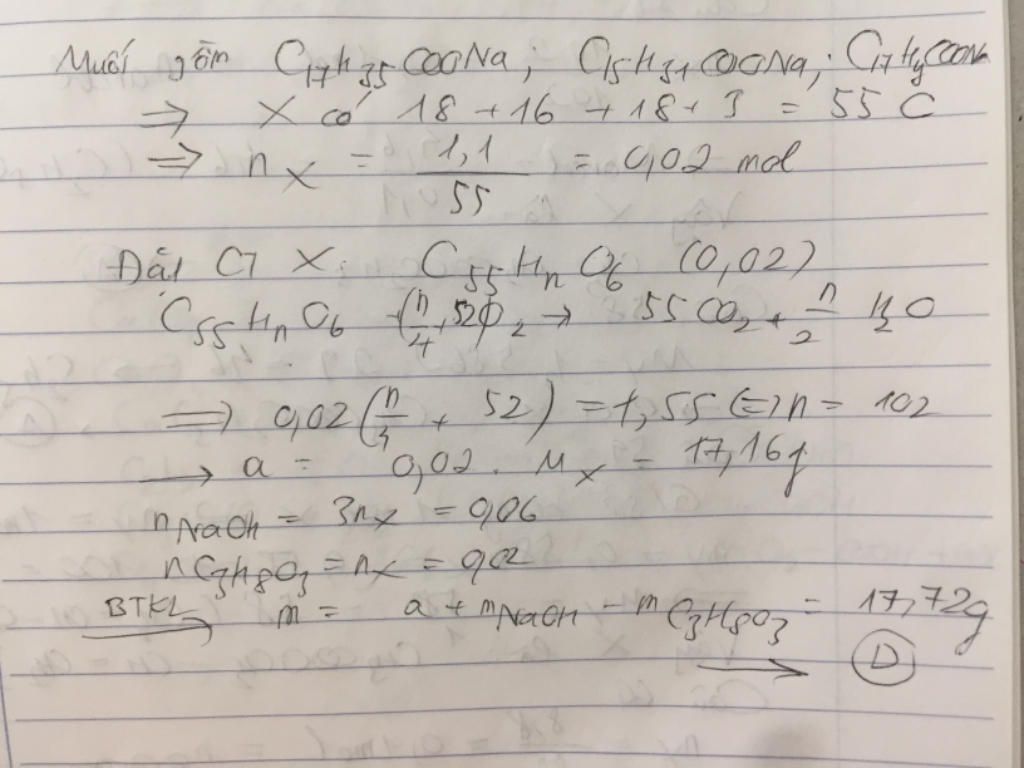 Muối gồm C17H35COONa; C15H31COONa; C17HyCOONa
⇒ X có 18 + 16 + 18 + 3 = 55 C
⇒ nX = 1,1/55 = 0,02 mol
Đặt CT X: C55HnO6 (0,02)
C55HnO6 + (n/4 + 52)O2 → 55CO2 + n/2 H2O
⇒ 0,02(n/4 + 52) = 1,55 ⇔ n = 102
→ a = 0,02 . MX = 17,16g
nNaOH = 3nX = 0,06
nC3H8O3 = nX = 0,02
BTKL → m = a + mNaOH - mC3H8O3 = 17,72g
→ D